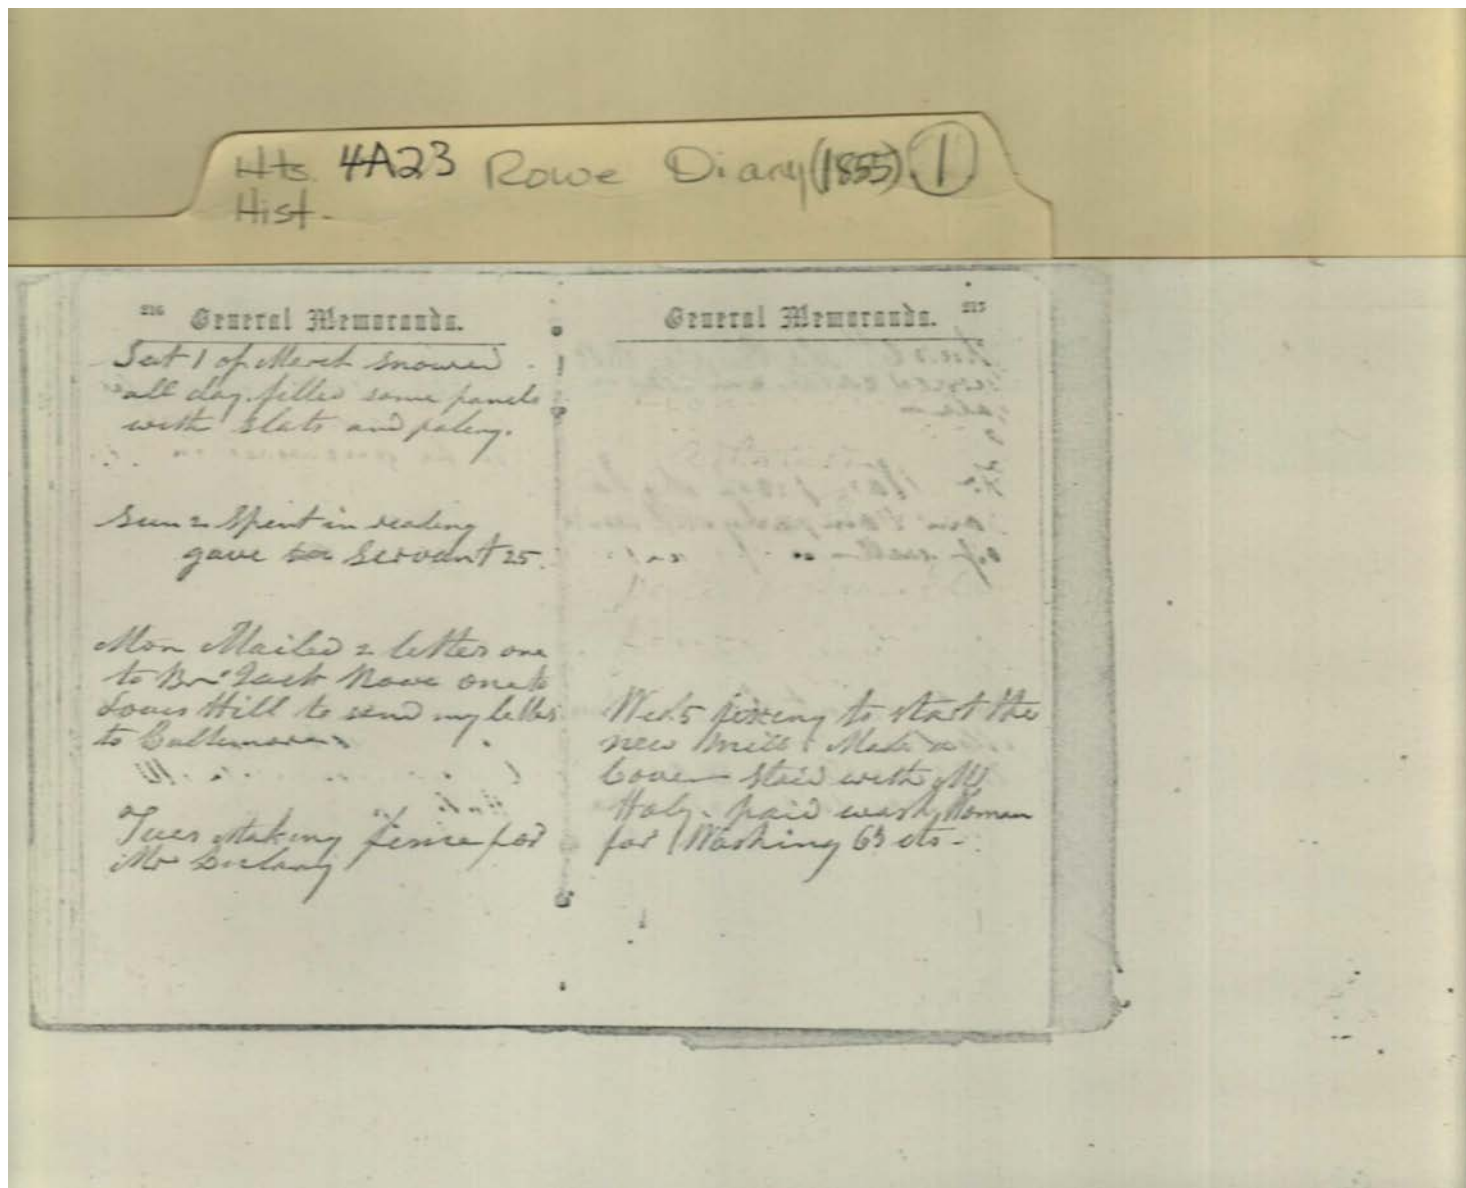 Hts. 4A23 Rowe Diary (1855) 1
Hist.
216 General Memoranda.
Sat 1 of March snowed
all day filled some panels
with slats and paleng.
Sun 2 Spent in reading
gave Servant 25.
Mon Mailed 2 letters one
to Br Jack Rowe one to
Hill to send my letters
to Baltimore
Tues Making fence for
Mr Dulany
General Memoranda. 215
Wed 5 fixeng to start the
new Mill. Made a
Cover Stair with Mr
paid wash Woman
for Washing 63 cts -